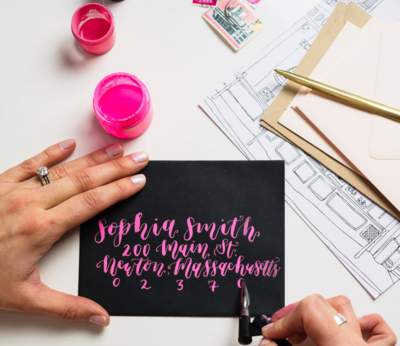 Sophia Smith
200 Main St.
Newton, Massachusetts
0 2 3 7 0